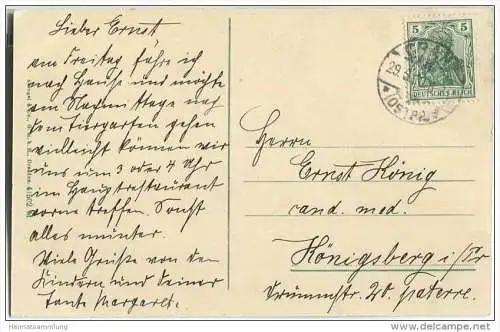 Lieber Ernst
am Freitag fahre ich
nach Hause und möchte
am Tage nach
dem Tiergarten gehen
vielleicht können wir
uns um 3 oder 4 Uhr
im Hauptrestaurant
vorne treffen. Sonst
alles munter.
Viele Grüße von den
Kindern und Deiner
Tante Margaret.
5 5
DEUTSCHES REICH
29.
Herrn
Ernst König
cand. med.
Königsberg i/Pr
20. paterre.
Heimatsammlung